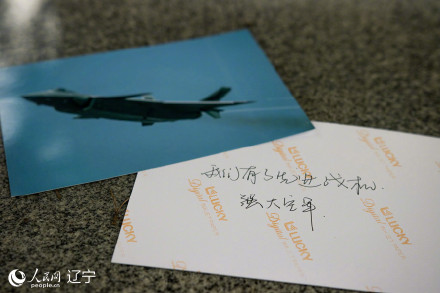 我们有了先进战机.
强大空军.
LUCKY
LUCKY
Digital
LUCKY
Digital
LUCKY
Digital
LUCKY
人民网 辽宁
people.cn